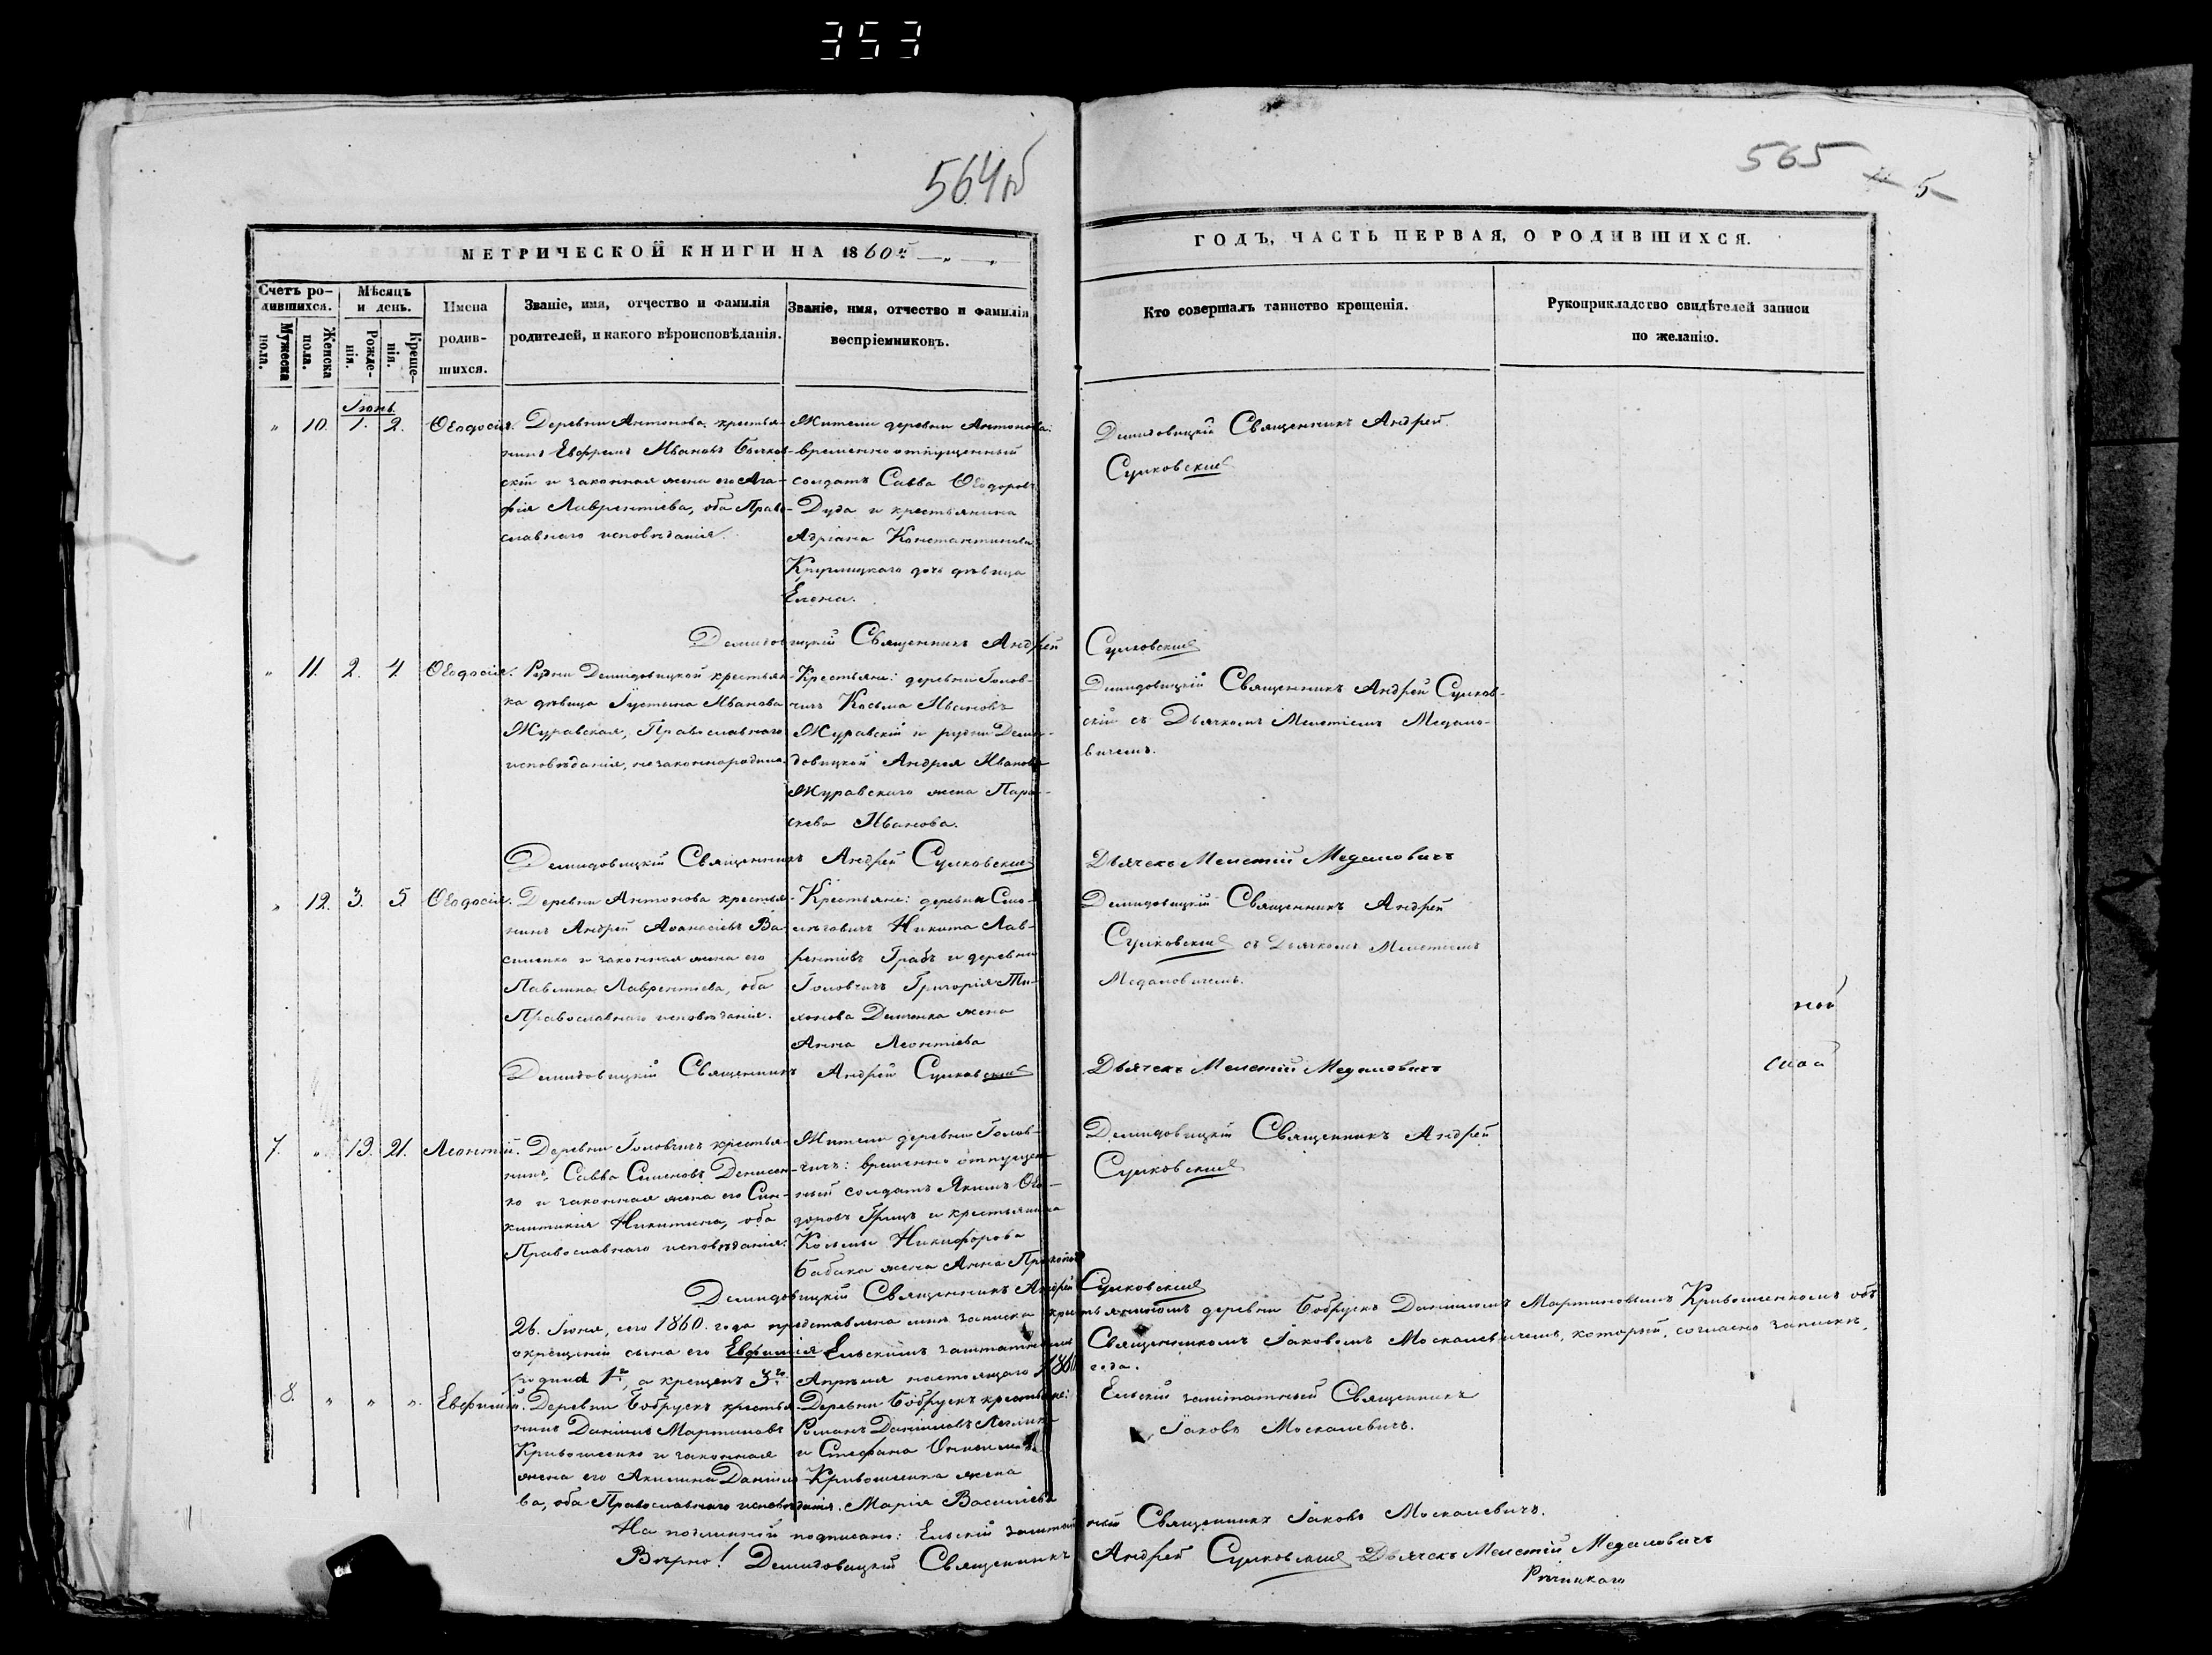 353
564об
565
5
МЕТРИЧЕСКОЙ КНИГИ НА 1860й
ГОДЪ, ЧАСТЬ ПЕРВАЯ, О РОДИВШИХСЯ.
Счетъ ро-
дившихся.
Мужеска
пола.
Женска
пола.
Мѣсяцъ
и день.
Рожде-
нія.
Креще-
нія.
Имена
родив-
шихся.
Званіе, имя, отчество и фамилія
родителей, и какого вѣроисповѣданія.
Званіе, имя, отчество и фамилія
воспріемниковъ.
Кто совершалъ таинство крещенія.
Рукоприкладство свидѣтелей записи
по желанію.
Іюнь
" 10. 1. 2. Ѳеодосія.
Деревни Антонова, крестья-
нинъ Евфремъ Ивановъ
скій и законная жена его Ага-
фія Лаврентіева, оба Право-
славнаго исповѣданія.
Жители деревни Антонова:
временно отпущенный
солдатъ Савва Ѳеодоровъ
Дуда и крестьянина
Адріана Константинова
дочь дѣвица
Елена.
Демидовицкій Священникъ Андрей
Сулковскій
Демидовицкій Священникъ Андрей Сулковскій
" 11. 2. 4. Ѳеодосія.
Рудни Демидовицкой крестьян-
ка дѣвица Іустина Иванова
Журавская, Православнаго
исповѣданія, незаконнорожден.
Крестьяне: деревни Голов-
чичъ Косьма Ивановъ
Журавскій и рудни Деми-
довицкой Андрея Иванова
Журавскаго жена Пара-
скева Иванова.
Демидовицкій Священникъ Андрей Сулков-
скій съ Дьячкомъ Мелетіемъ Медало-
вичемъ.
Демидовицкій Священникъ Андрей Сулковскій Дьячекъ Мелетій Медаловичъ
" 12. 3. 5. Ѳеодосія.
Деревни Антонова крестья-
нинъ Андрей Аѳанасіевъ Ва-
силенко и законная жена его
Павлина Лаврентіева, оба
Православнаго исповѣданія.
Крестьяне: деревни Смо-
лѣговичъ Никита Лав-
рентіевъ Грабъ и деревни
Головчичъ Григорія Ти-
хонова Демченка жена
Анна Леонтіева
Демидовицкій Священникъ Андрей
Сулковскій съ Дьячкомъ Мелетіемъ
Медаловичемъ.
ной
Демидовицкій Священникъ Андрей Сулковскій Дьячекъ Мелетій Медаловичъ
7. " 19. 21. Леонтій.
Деревни Головчичъ крестья-
нинъ, Савва Симеоновъ Денисен-
ко и законная жена его Син-
клитикія Никитина, оба
Православнаго исповѣданія.
Жители деревни Голов-
чичъ: временно отпущен-
ный солдатъ Якимъ Ѳео-
доровъ Грицъ и крестьянина
Косьмы Никифорова
Бабака жена Анна Прокопова
Демидовицкій Священникъ Андрей
Сулковскій
Демидовицкій Священникъ Андрей Сулковскій
26. Іюня, сего 1860. года представлена мнѣ записка крестьяниномъ деревни Бобрускъ Даніиломъ Мартиновымъ Кривошеенкомъ объ
окрещеніи сына его Евфимія Ельскимъ заштатнымъ Священникомъ Іаковомъ Москалевичемъ, который, согласно записки,
родился 1го, а крещенъ 3го Апрѣля настоящаго 1860 года.
8. " " " Евфимій.
Деревни Бобрускъ крестья-
нинъ Даніилъ Мартиновъ
Кривошеенко и законная
жена его Акилина Даніило-
ва, оба Православнаго исповѣданія.
Деревни Бобрускъ крестьяне:
Романъ Даніиловъ
и Стефана
Кривошеенка жена
Марія Василіева
Ельскій заштатный Священникъ
Іаковъ Москалевичъ.
На подлинной подписано: Ельскій заштатный Священникъ Іаковъ Москалевичъ.
Вѣрно! Демидовицкій Священникъ Андрей Сулковскій Дьячекъ Мелетій Медаловичъ
Рѣчицкаго